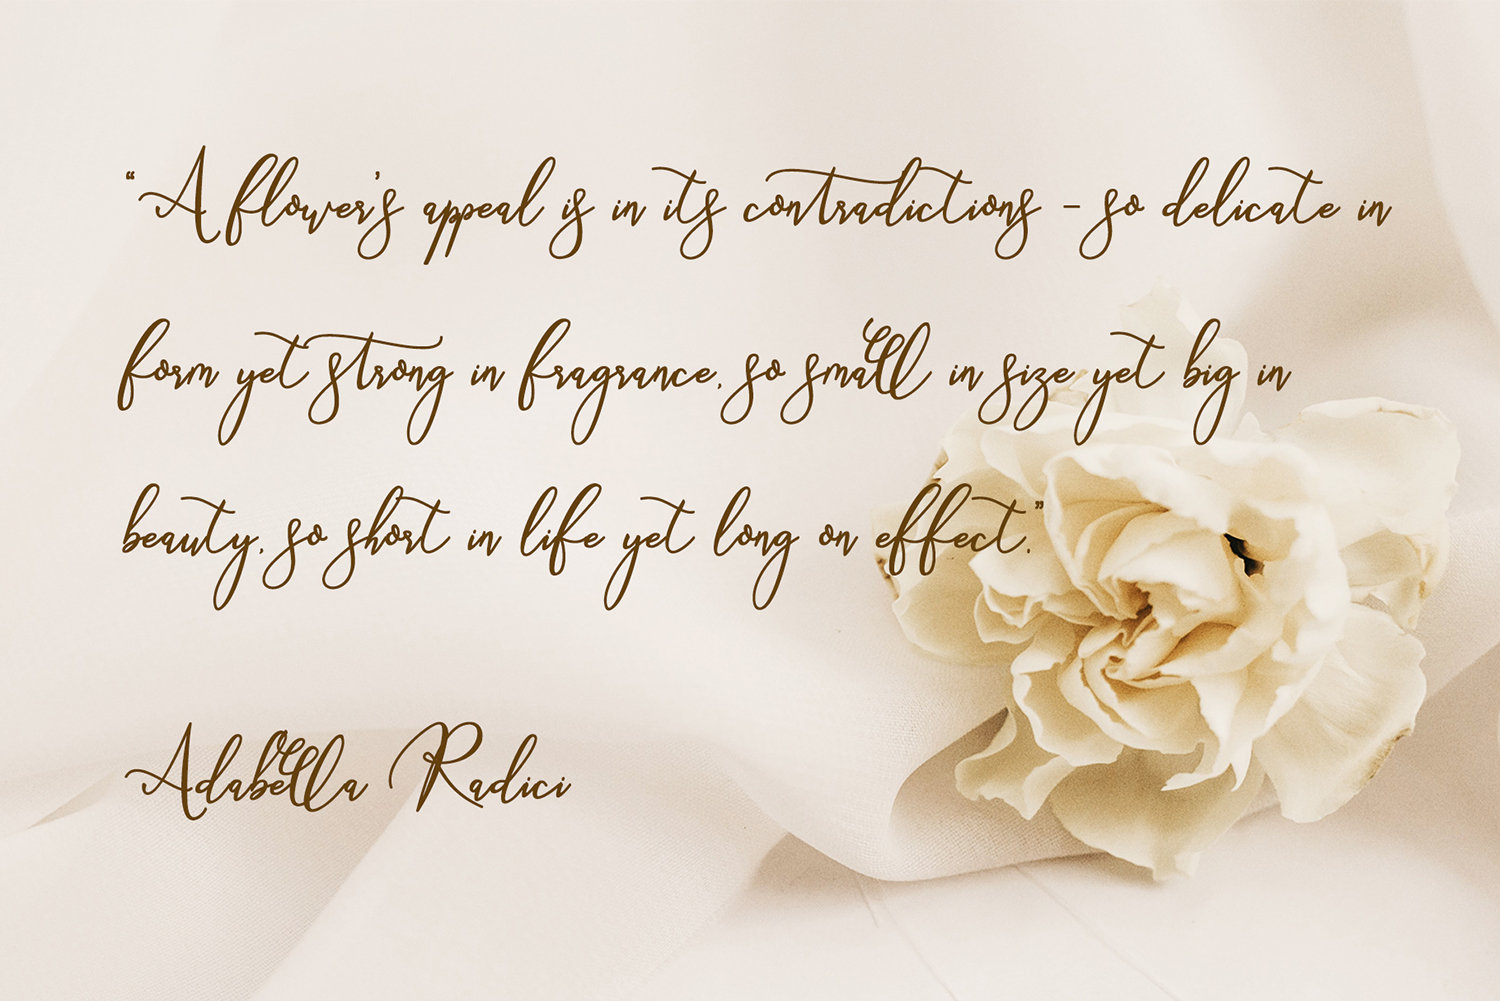 “A flower’s appeal is in its contradictions - so delicate in
form yet strong in fragrance, so small in size yet big in
beauty, so short in life yet long on effect.”
Adabella Radici